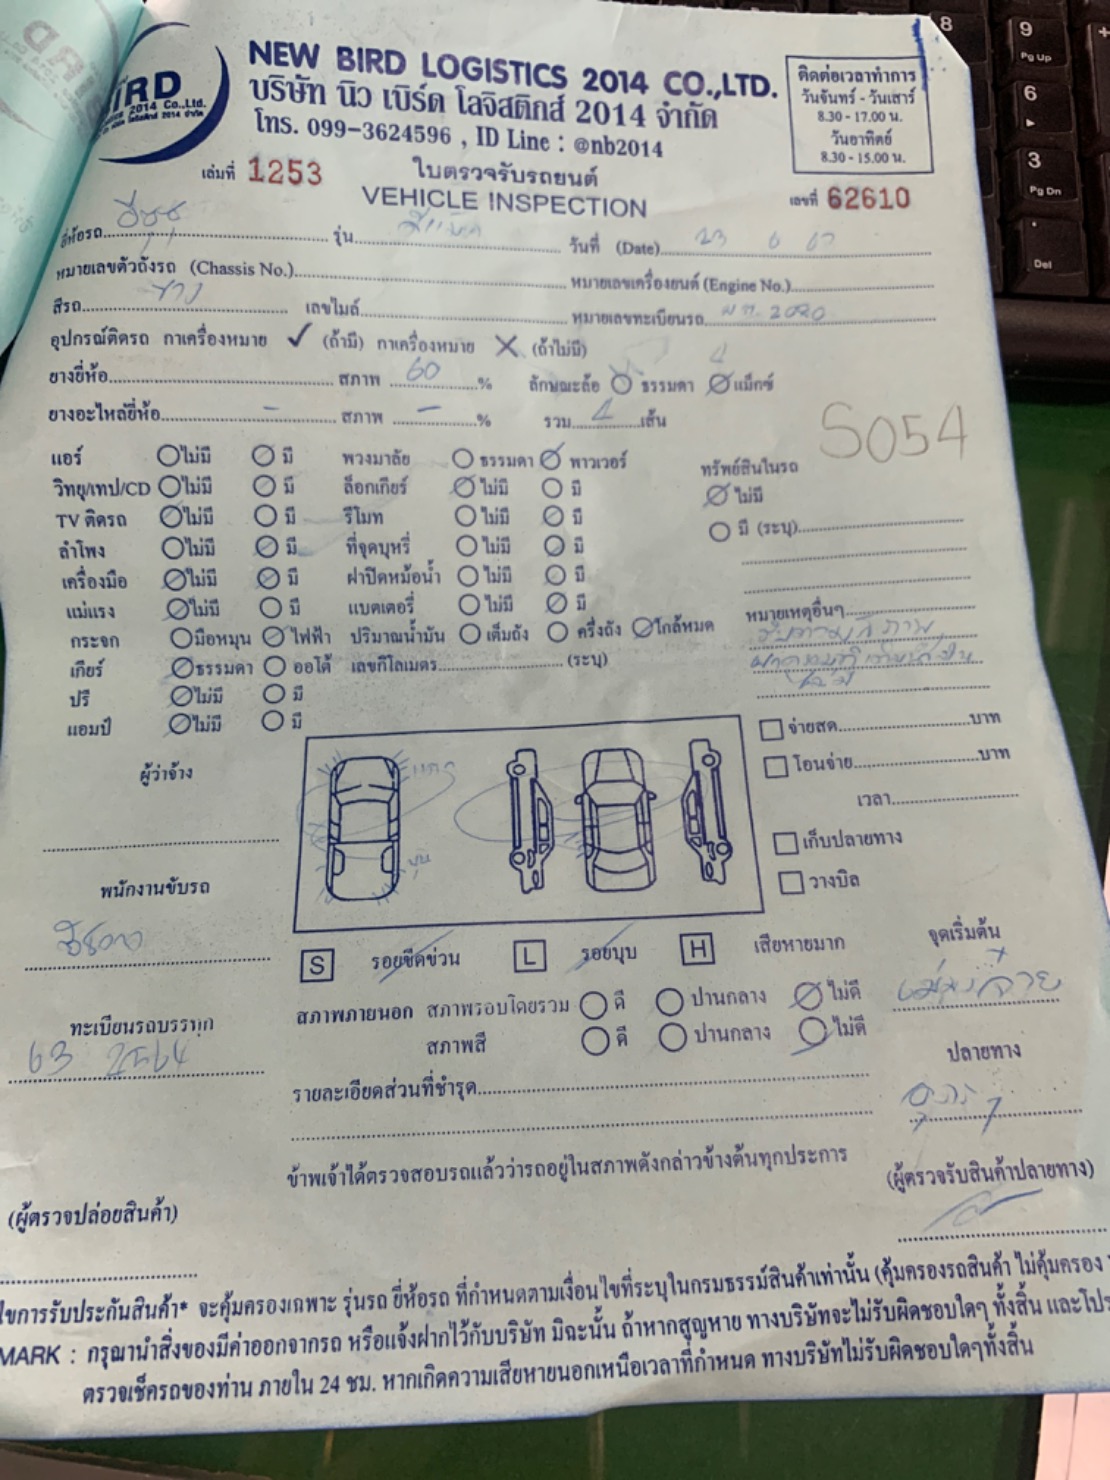 BIRD
2014 Co.,Ltd.
NEW BIRD LOGISTICS 2014 CO.,LTD.
บริษัท นิว เบิร์ด โลจิสติกส์ 2014 จำกัด
โทร. 099-3624596 , ID Line : @nb2014
ติดต่อเวลาทำการ
วันจันทร์ - วันเสาร์
8.30 - 17.00 น.
วันอาทิตย์
8.30 - 15.00 น.
เล่มที่ 1253
ใบตรวจรับรถยนต์
VEHICLE INSPECTION
เลขที่ 62610
ยี่ห้อรถ อีซูซุ รุ่น วันที่ (Date) 23 6 67
หมายเลขตัวถังรถ (Chassis No.) หมายเลขเครื่องยนต์ (Engine No.)
สีรถ เลขไมล์ หมายเลขทะเบียนรถ 2020
อุปกรณ์ติดรถ กาเครื่องหมาย ✓ (ถ้ามี) กาเครื่องหมาย ✗ (ถ้าไม่มี)
ยางยี่ห้อ สภาพ 60 % ลักษณะล้อ ธรรมดา แม็กซ์ 4
ยางอะไหล่ยี่ห้อ - สภาพ - % รวม 4 เส้น
S054
แอร์ ไม่มี มี พวงมาลัย ธรรมดา พาวเวอร์ ทรัพย์สินในรถ
วิทยุ/เทป/CD ไม่มี มี ล็อกเกียร์ ไม่มี มี ไม่มี
TV ติดรถ ไม่มี มี รีโมท ไม่มี มี มี (ระบุ)
ลำโพง ไม่มี มี ที่จุดบุหรี่ ไม่มี มี
เครื่องมือ ไม่มี มี ฝาปิดหม้อน้ำ ไม่มี มี
แม่แรง ไม่มี มี แบตเตอรี่ ไม่มี มี หมายเหตุอื่นๆ
กระจก มือหมุน ไฟฟ้า ปริมาณน้ำมัน เต็มถัง ครึ่งถัง ใกล้หมด
เกียร์ ธรรมดา ออโต้ เลขกิโลเมตร (ระบุ)
ปรี ไม่มี มี
แอมป์ ไม่มี มี
จ่ายสด บาท
โอนจ่าย บาท
เวลา
เก็บปลายทาง
วางบิล
ผู้ว่าจ้าง
พนักงานขับรถ
ทะเบียนรถบรรทุก
63 2564
บุบ
S รอยขีดข่วน L รอยบุบ H เสียหายมาก
จุดเริ่มต้น
สภาพภายนอก สภาพรอบโดยรวม ดี ปานกลาง ไม่ดี
สภาพสี ดี ปานกลาง ไม่ดี
ปลายทาง
รายละเอียดส่วนที่ชำรุด
ข้าพเจ้าได้ตรวจสอบรถแล้วว่ารถอยู่ในสภาพดังกล่าวข้างต้นทุกประการ
(ผู้ตรวจรับสินค้าปลายทาง)
(ผู้ตรวจปล่อยสินค้า)
ไขการรับประกันสินค้า* จะคุ้มครองเฉพาะ รุ่นรถ ยี่ห้อรถ ที่กำหนดตามเงื่อนไขที่ระบุในกรมธรรม์สินค้าเท่านั้น (คุ้มครองรถสินค้า ไม่คุ้มครอง
MARK : กรุณานำสิ่งของมีค่าออกจากรถ หรือแจ้งฝากไว้กับบริษัท มิฉะนั้น ถ้าหากสูญหาย ทางบริษัทจะไม่รับผิดชอบใดๆ ทั้งสิ้น และโปร
ตรวจเช็ครถของท่าน ภายใน 24 ชม. หากเกิดความเสียหายนอกเหนือเวลาที่กำหนด ทางบริษัทไม่รับผิดชอบใดๆทั้งสิ้น
8
9
Pg Up
6
3
Pg Dn
.
Del
+